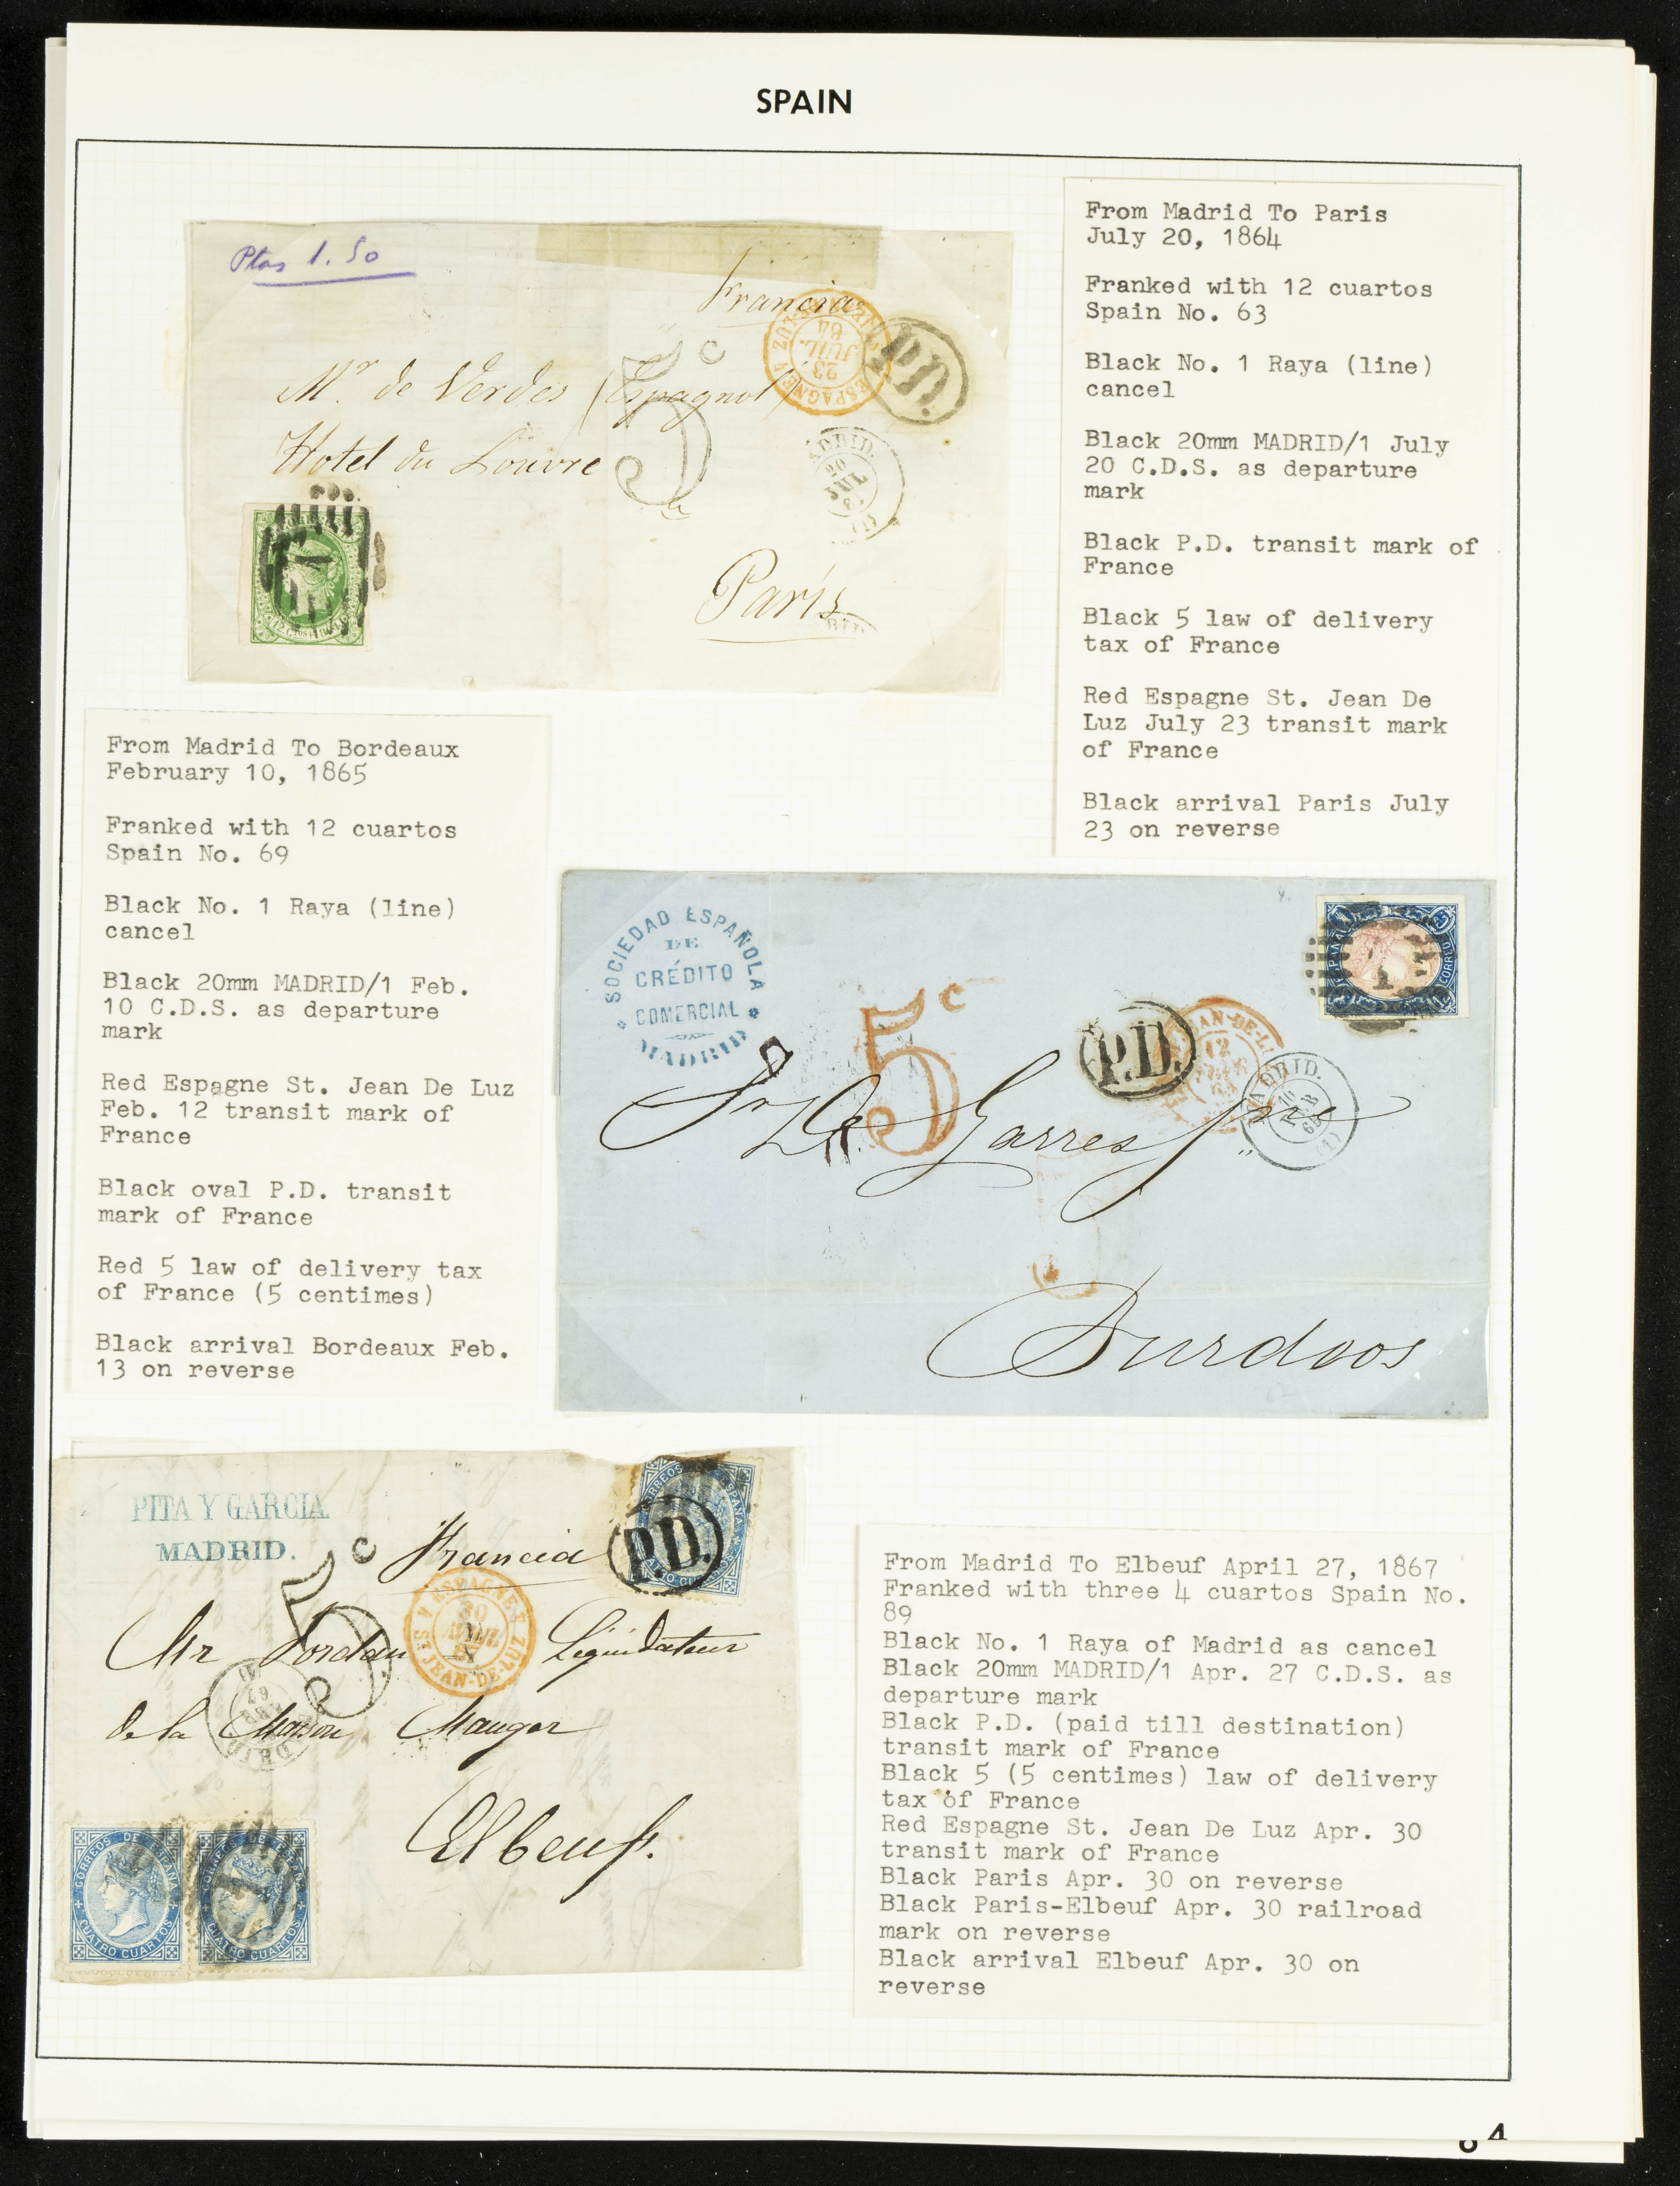 SPAIN
Ptas 1.50
Francia
ESPAGNE
23
JUIL.
64
P.D.
5c
Mr. de Verdes (Espagnol)
Hotel du Louvre
MADRID.
20
JUL
64
(1)
1
Paris
From Madrid To Paris
July 20, 1864
Franked with 12 cuartos
Spain No. 63
Black No. 1 Raya (line)
cancel
Black 20mm MADRID/1 July
20 C.D.S. as departure
mark
Black P.D. transit mark of
France
Black 5 law of delivery
tax of France
Red Espagne St. Jean De
Luz July 23 transit mark
of France
Black arrival Paris July
23 on reverse
From Madrid To Bordeaux
February 10, 1865
Franked with 12 cuartos
Spain No. 69
Black No. 1 Raya (line)
cancel
Black 20mm MADRID/1 Feb.
10 C.D.S. as departure
mark
Red Espagne St. Jean De Luz
Feb. 12 transit mark of
France
Black oval P.D. transit
mark of France
Red 5 law of delivery tax
of France (5 centimes)
Black arrival Bordeaux Feb.
13 on reverse
SOCIEDAD ESPAÑOLA
DE
CRÉDITO
COMERCIAL
MADRID
5c
P.D.
JEAN-DE-L
12
MADRID.
10
FEB
65
(1)
CORREO
1
Garres
Burdeos
PITA Y GARCIA
MADRID.
5c
Francia
P.D.
CORREOS DE ESPAÑA
CUATRO CUARTOS
ESPAGNE
30
ST JEAN-DE-LUZ
Mr Jordan Liquidateur
de la Maison Mauger
67
Elbeuf.
CORREOS DE ESPAÑA
CUATRO CUARTOS
CORREOS DE ESPAÑA
CUATRO CUARTOS
From Madrid To Elbeuf April 27, 1867
Franked with three 4 cuartos Spain No.
89
Black No. 1 Raya of Madrid as cancel
Black 20mm MADRID/1 Apr. 27 C.D.S. as
departure mark
Black P.D. (paid till destination)
transit mark of France
Black 5 (5 centimes) law of delivery
tax of France
Red Espagne St. Jean De Luz Apr. 30
transit mark of France
Black Paris Apr. 30 on reverse
Black Paris-Elbeuf Apr. 30 railroad
mark on reverse
Black arrival Elbeuf Apr. 30 on
reverse